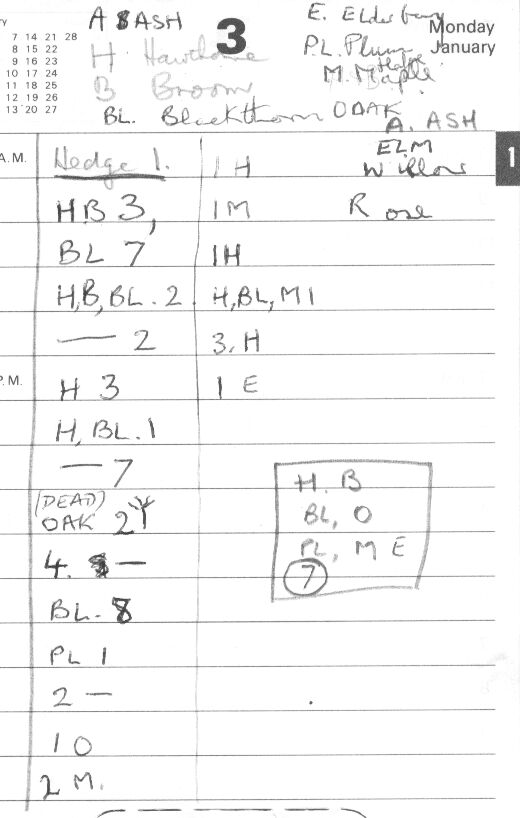 A ASH
3
Monday
January
E. Elderbury
7 14 21 28
8 15 22
9 16 23
10 17 24
11 18 25
12 19 26
13 20 27
H Hawthorne
P.L. Plum
B Broom
M. Maple
BL. Blackthorn
O OAK
A. ASH
ELM
Willow
Rose
1
A.M.
Hedge 1.
1 H
HB 3,
1 M
BL 7
1H
H,B,BL. 2
H,BL,M 1
— 2
3. H
P.M.
H 3
1 E
H, BL. 1
— 7
(DEAD)
OAK 2
4. —
BL. 8
PL 1
2 —
1 O
2 M.
H. B
BL, O
PL, M E
7